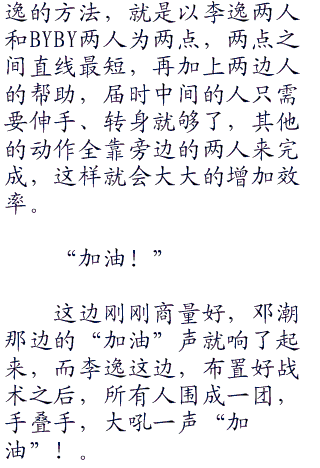 逸的方法，就是以李逸两人
和BYBY两人为两点，两点之
间直线最短，再加上两边人
的帮助，届时中间的人只需
要伸手、转身就够了，其他
的动作全靠旁边的两人来完
成，这样就会大大的增加效
率。
“加油！”
这边刚刚商量好，邓潮
那边的“加油”声就响了起
来，而李逸这边，布置好战
术之后，所有人围成一团，
手叠手，大吼一声“加
油”！。